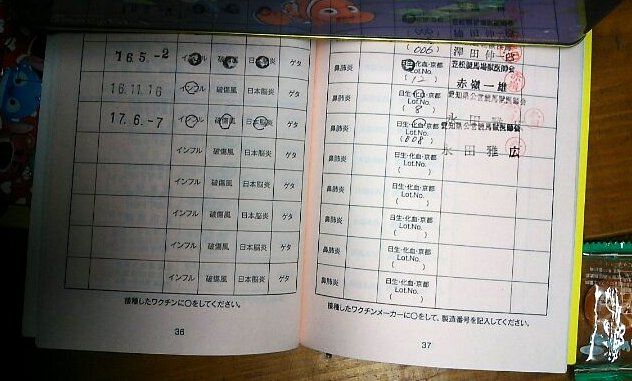 '16.5.-2 インフル 破傷風 日本脳炎 ゲタ
16.11.16 インフル 破傷風 日本脳炎 ゲタ
17.6.-7 インフル 破傷風 日本脳炎 ゲタ
インフル 破傷風 日本脳炎 ゲタ
インフル 破傷風 日本脳炎 ゲタ
インフル 破傷風 日本脳炎 ゲタ
インフル 破傷風 日本脳炎 ゲタ
インフル 破傷風 日本脳炎 ゲタ
接種したワクチンに〇をしてください。
36
(006) 澤田伸一
鼻肺炎 日生・化血・京都 笠松競馬場獣医師会
Lot.No.
(12) 赤嶺一雄
鼻肺炎 日生・化血・京都 愛知県公営競馬獣医師会
Lot.No.
(8) 永田雅広
鼻肺炎 日生・化血・京都 愛知県公営競馬獣医師会
Lot.No.
(008) 永田雅広
鼻肺炎 日生・化血・京都
Lot.No.
( )
鼻肺炎 日生・化血・京都
Lot.No.
( )
鼻肺炎 日生・化血・京都
Lot.No.
( )
鼻肺炎 日生・化血・京都
Lot.No.
( )
鼻肺炎 日生・化血・京都
Lot.No.
( )
接種したワクチンメーカーに〇をして、製造番号を記入してください。
37